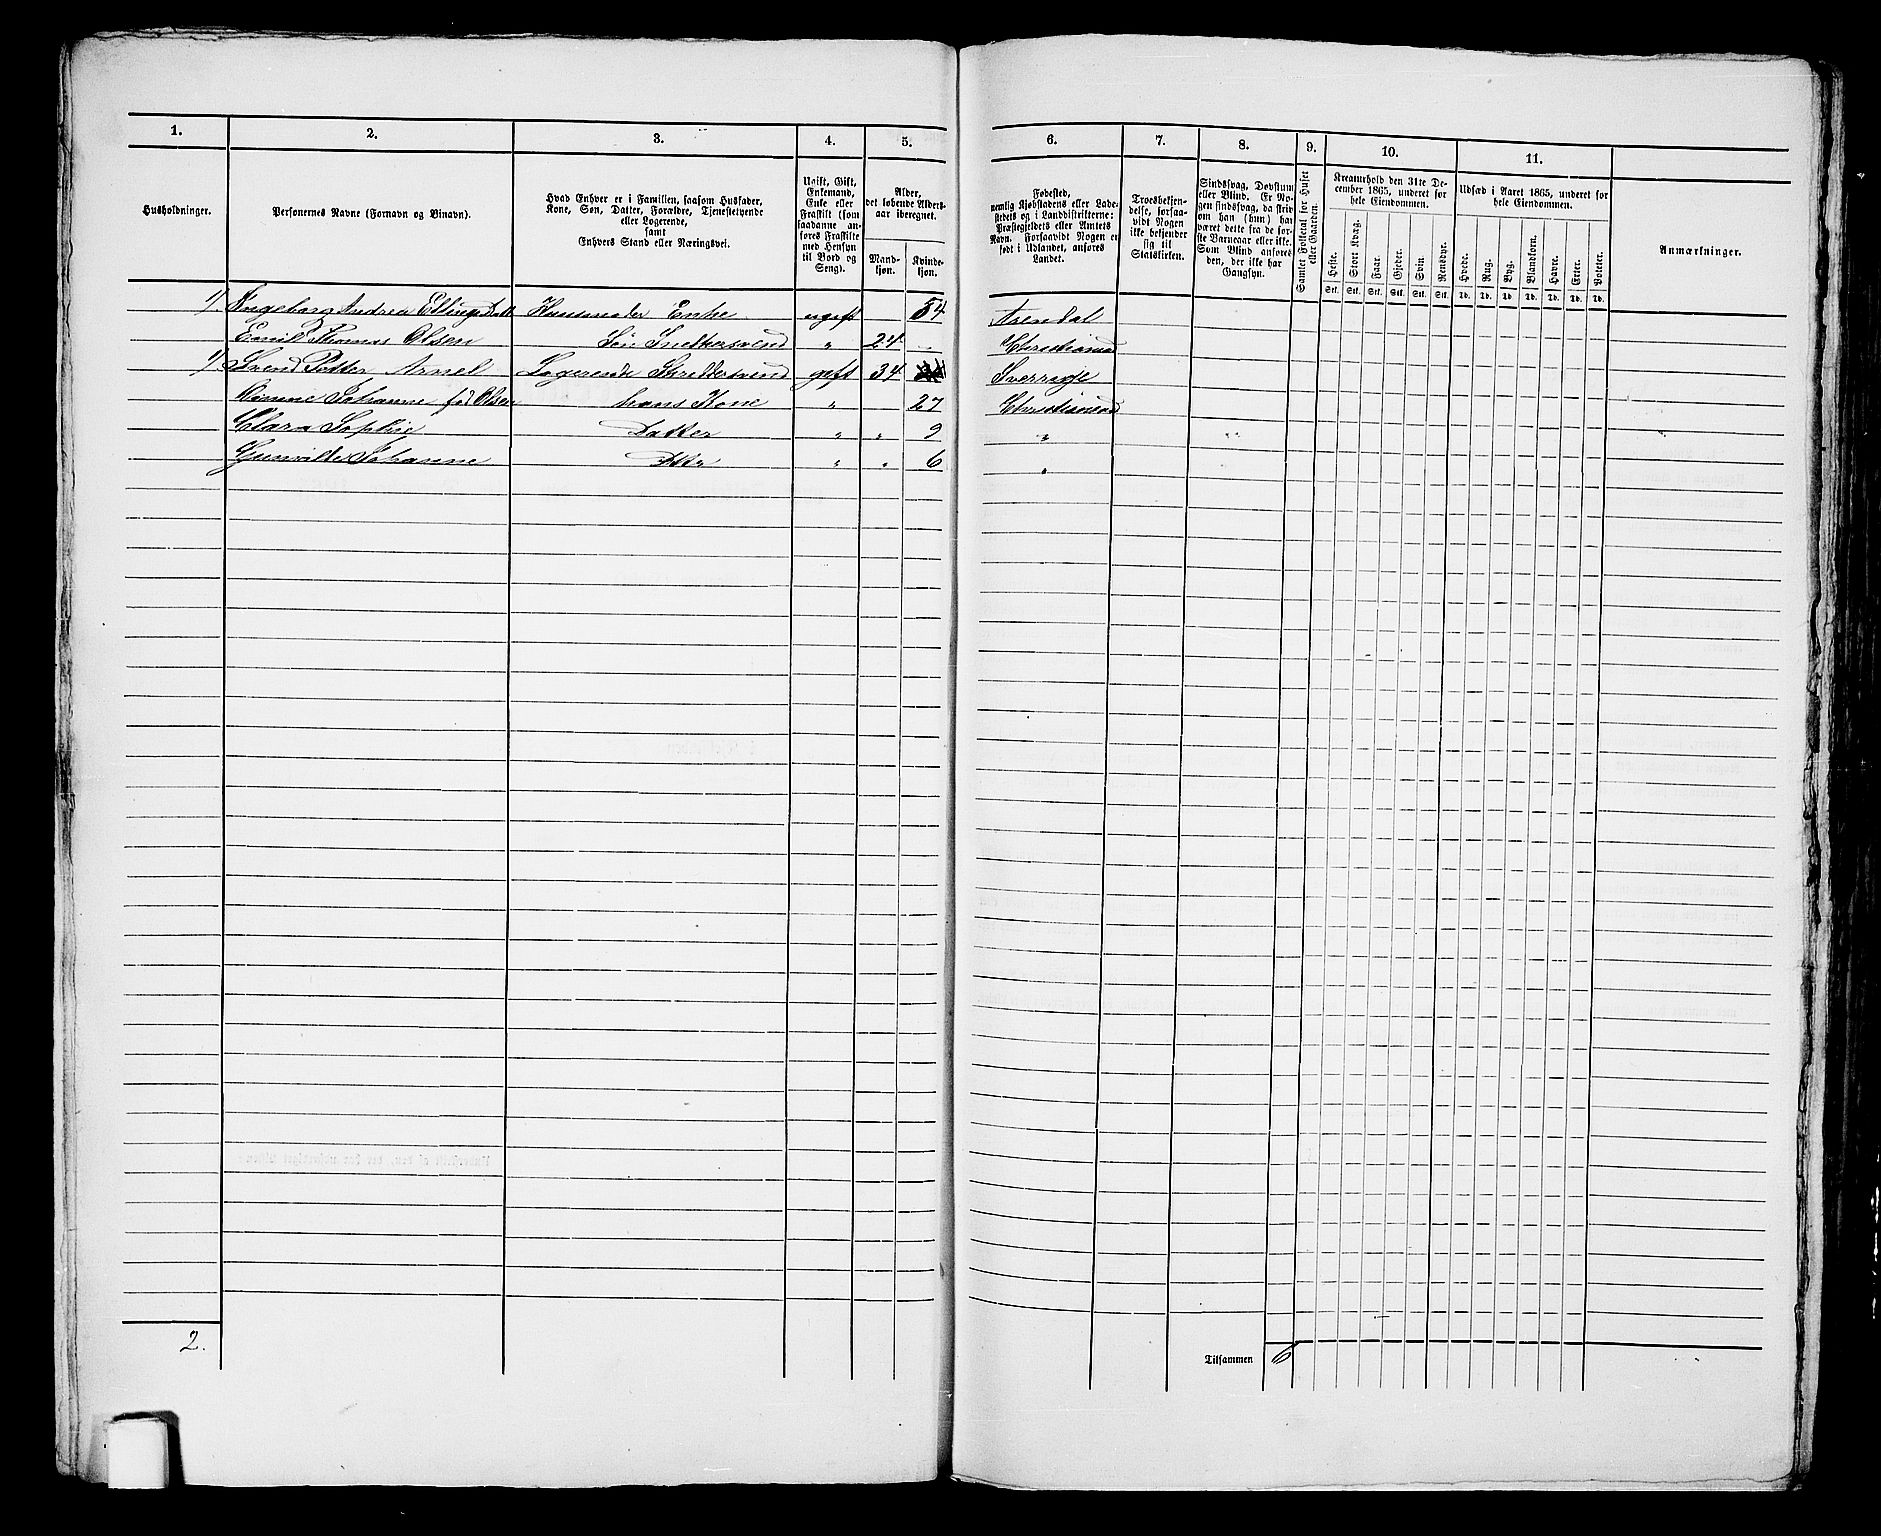 1. 2. 3. 4. 5. 6. 7. 8. 9. 10. 11.
Husholdninger.
Personernes Navne (Fornavn og Binavn).
Hvad Enhver er i Familien, saasom Husfader,
Kone, Søn, Datter, Forældre, Tjenestetyende
eller Logerende,
samt
Enhvers Stand eller Næringsvei.
Ugift, Gift,
Enkemand,
Enke eller
Fraskilt (som
saadanne an-
føres Fraskilte
med Hensyn
til Bord og
Seng).
Alder,
det løbende Alders-
aar iberegnet.
Mand-
kjøn.
Kvinde-
kjøn.
Fødested,
nemlig Kjøbstadens eller Lade-
stedets og i Landdistrikterne:
Præstegjeldets eller Amtets
Navn. Forsaavidt Nogen er
født i Udlandet, anføres
Landet.
Troesbekjen-
delse, forsaa-
vidt Nogen
ikke bekjender
sig til
Statskirken.
Sindssvag, Døvstum
eller Blind. Er No-
gen sindssvag, da skriv
om han (hun) har
været dette fra de før-
ste Barneaar eller ikke.
Som Blind anføres
den, der ikke har
Gangsyn.
Samlet Folketal for Huset
eller Gaarden.
Kreaturhold den 31te De-
cember 1865, underet for
hele Eiendommen.
Heste. Stort Kvæg. Faar. Gjeder. Svin. Rensdyr.
Stk. Stk. Stk. Stk. Stk. Stk.
Udsæd i Aaret 1865, underet for
hele Eiendommen.
Hvede. Rug. Byg. Blandkorn. Havre. Erter. Poteter.
Td. Td. Td. Td. Td. Td. Td.
Anmærkninger.
1/. Ingeborg Andrea Ellings Datt Huusmoder Enke ugift 54 Arendal
Emil Thomas Olsen Søn Snedkersvend „ 24 Christiansd
1/ Svend Petter Arnel Logerende Skreddersvend gift 34 Sverrige
Johanne fød Olsen hans Kone „ 27 Christiansd
Clara Sophie Datter „ „ 9 „
Gunvilde Johanne Dttr „ „ 6 „
2.
Tilsammen 6